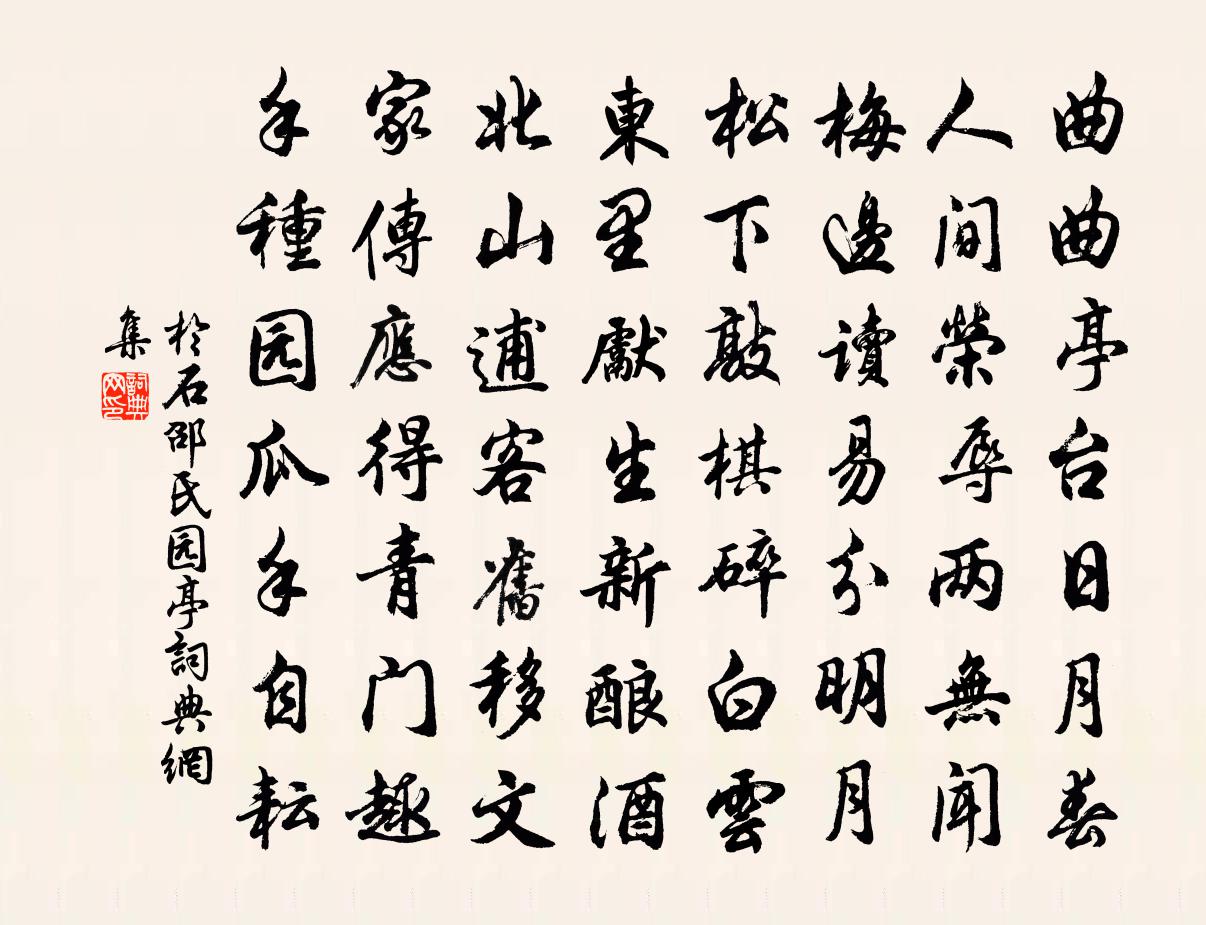 曲曲亭台日月春
人间榮辱两無闻
梅邊讀易分明月
松下敲棋碎白雲
東里獻生新酿酒
北山逋客舊移文
家傳應得青门趣
手種园瓜手自耘
於石邵氏园亭詞典網
集
詞典
网印